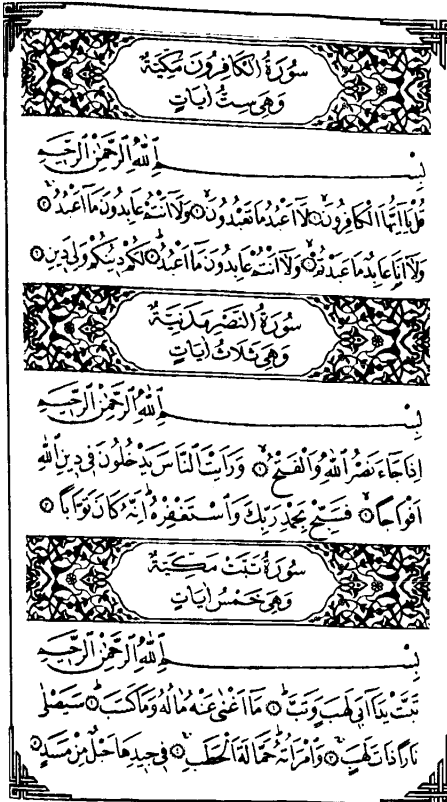 سُورَةُ الْكَافِرُونَ مَكِّيَّةٌ
وَهِيَ سِتُّ اٰيَاتٍ
بِسْمِ اللّٰهِ الرَّحْمٰنِ الرَّحِيمِ
قُلْ يَٓا اَيُّهَا الْكَافِرُونَۙ ﴿١﴾ لَٓا اَعْبُدُ مَا تَعْبُدُونَۙ ﴿٢﴾ وَلَٓا اَنْتُمْ عَابِدُونَ مَٓا اَعْبُدُۚ ﴿٣﴾
وَلَٓا اَنَا۬ عَابِدٌ مَا عَبَدْتُمْۙ ﴿٤﴾ وَلَٓا اَنْتُمْ عَابِدُونَ مَٓا اَعْبُدُۜ ﴿٥﴾ لَكُمْ دِينُكُمْ وَلِيَ دِينِ ﴿٦﴾
سُورَةُ النَّصْرِ مَدَنِيَّةٌ
وَهِيَ ثَلَاثُ اٰيَاتٍ
بِسْمِ اللّٰهِ الرَّحْمٰنِ الرَّحِيمِ
اِذَا جَٓاءَ نَصْرُ اللّٰهِ وَالْفَتْحُۙ ﴿١﴾ وَرَاَيْتَ النَّاسَ يَدْخُلُونَ فِي دِينِ اللّٰهِ
اَفْوَاجًاۙ ﴿٢﴾ فَسَبِّحْ بِحَمْدِ رَبِّكَ وَاسْتَغْفِرْهُۜ اِنَّهُ كَانَ تَوَّابًا ﴿٣﴾
سُورَةُ تَبَّتْ مَكِّيَّةٌ
وَهِيَ خَمْسُ اٰيَاتٍ
بِسْمِ اللّٰهِ الرَّحْمٰنِ الرَّحِيمِ
تَبَّتْ يَدَٓا اَبِي لَهَبٍ وَتَبَّۜ ﴿١﴾ مَٓا اَغْنٰى عَنْهُ مَالُهُ وَمَا كَسَبَۜ ﴿٢﴾ سَيَصْلٰى
نَارًا ذَاتَ لَهَبٍۚ ﴿٣﴾ وَامْرَاَتُهُۜ حَمَّالَةَ الْحَطَبِۚ ﴿٤﴾ فِي جِيدِهَا حَبْلٌ مِنْ مَسَدٍ ﴿٥﴾